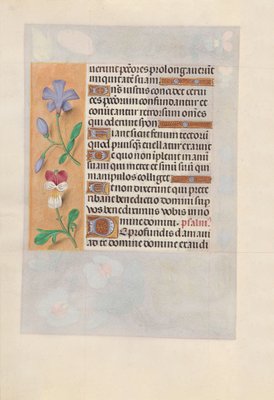 uerunt pctōres prolongauerūt
iniquitatē suam
Dn̄s iustus concidet ceruic
es pctōrum confundantur et
conūtantur retrorsum om̄es
qui oderunt syon
Fiant sicut fenum tectorū
quod priusq̄ euellatur aruit
De quo non īpleuit manum
suam qui metet et sinū suū qui
manipulos colliget
Et non dixerunt qui prete
ribant benedictio domini sup
vos benediximus vobis in no
mine domini. psalm⁹
De profundis clamaui
ad te domine domine exaudi